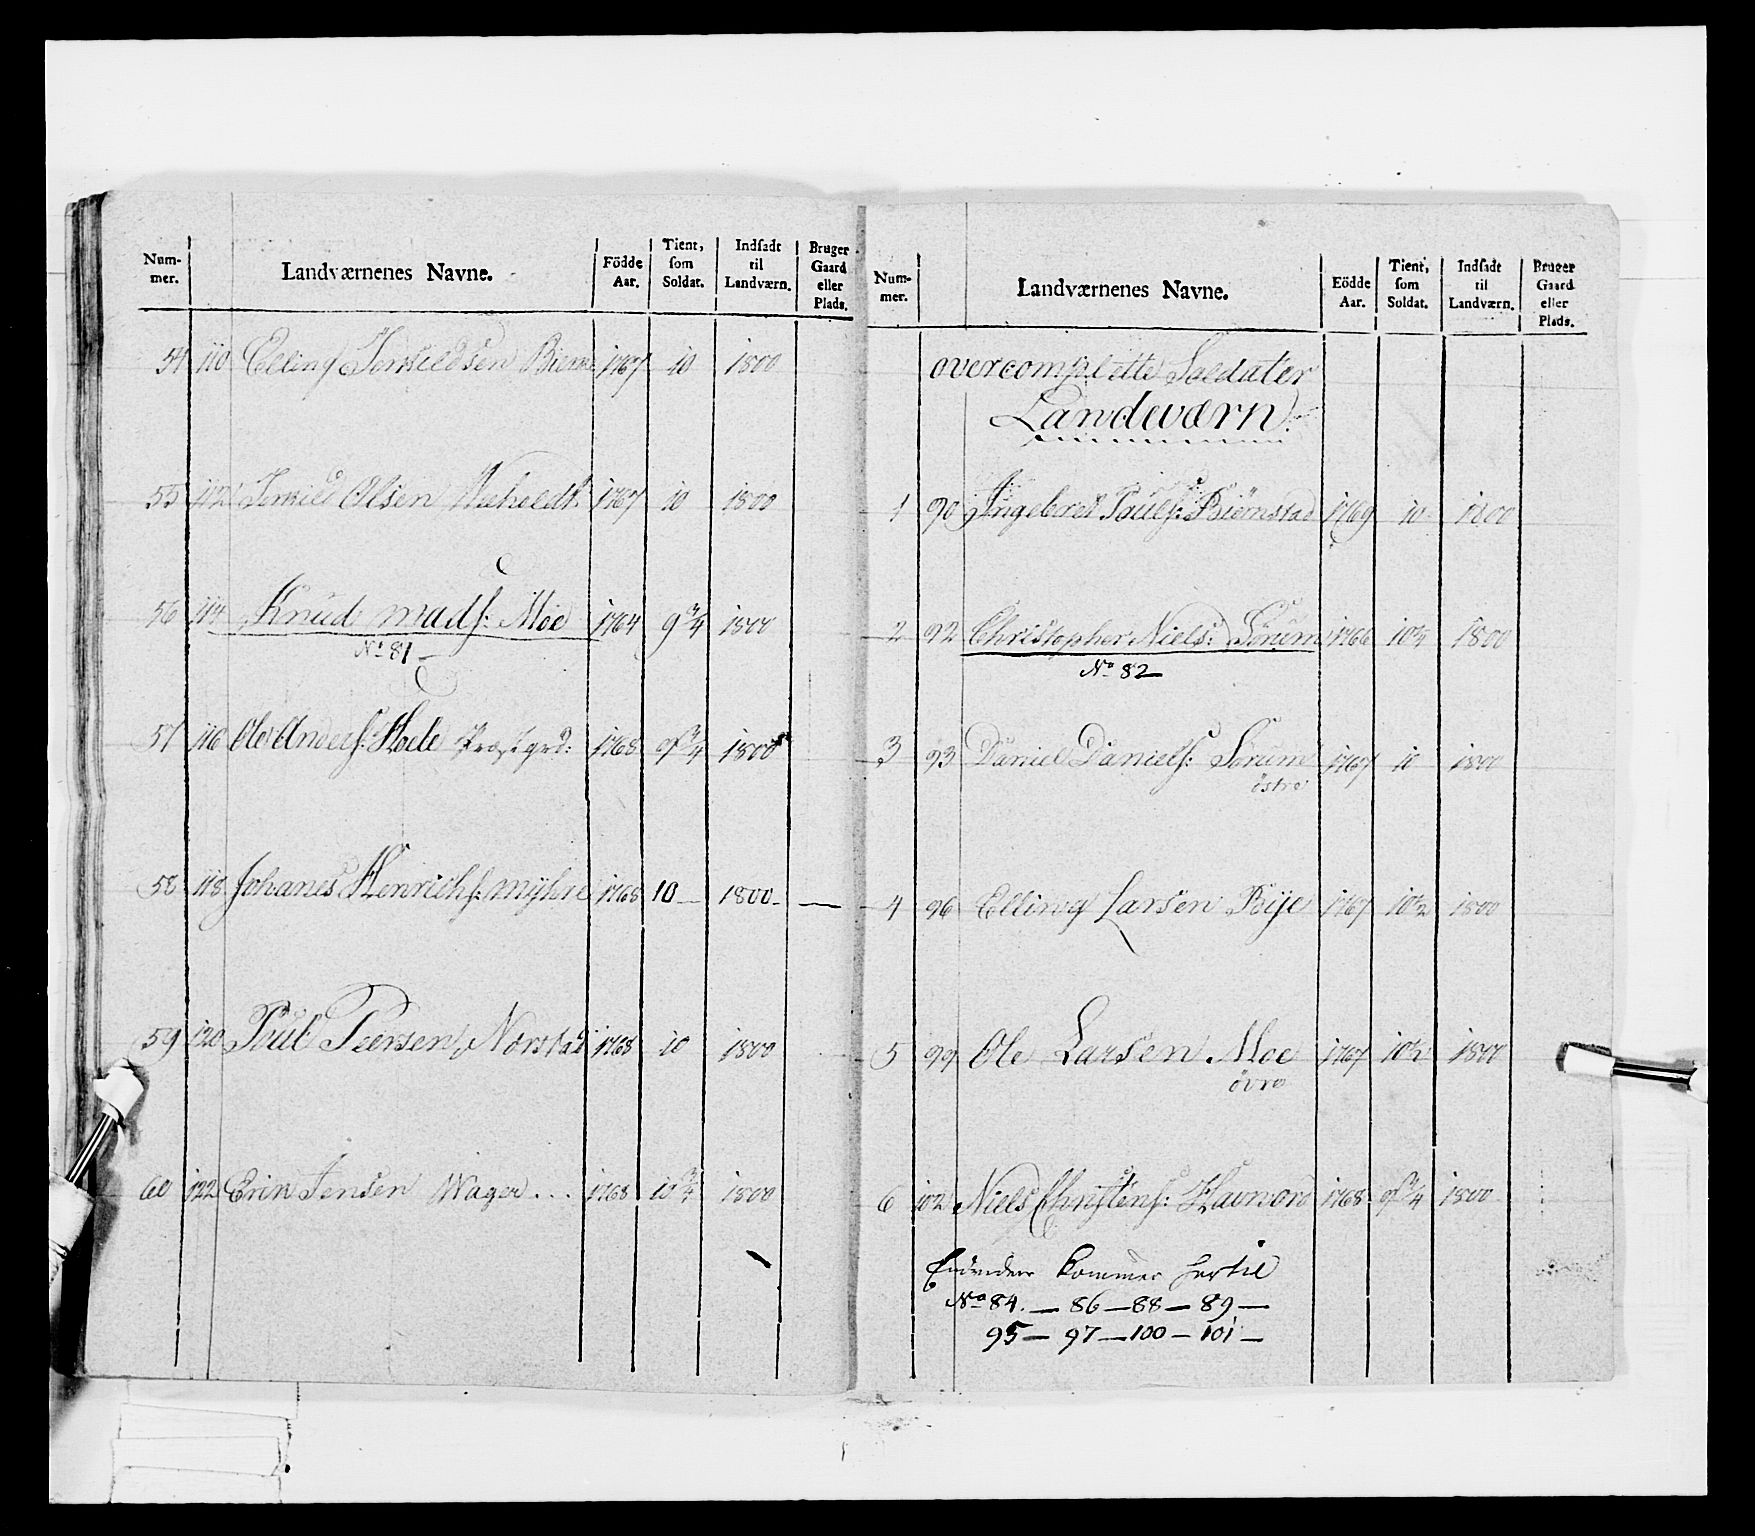 Num-
mer.
Landværnenes Navne.
Födde
Aar.
Tient,
som
Soldat.
Indsadt
til
Landværn.
Bruger
Gaard
eller
Plads.
54 110 Elling 1767 10 1800
55 112 Olsen 1767 10 1800
56 114 Knud Mads: Moe 1764 9 3/4 1800
No 81 —
57 116 Ole Anders: Hole Præstgrd: 1768 9 3/4 1800
58 118 Johanes Henrichs: Myhre 1768 10 — 1800 — —
59 120 Poul Peersen Norstad 1768 10 1800
60 122 Erik Jensen Wager . . . 1768 10 3/4 1800
Num-
mer.
Landværnenes Navne.
Födde
Aar.
Tient,
som
Soldat.
Indsadt
til
Landværn.
Bruger
Gaard
eller
Plads.
overcomplette Soldater
Landeværn.
1 90 Ingebret Pouls: Biørnstad 1769 10 1800
2 92 Christopher Niels: Sørum 1766 10 1/4 1800
No 82 —
3 93 Daniel Daniels: Sørum 1767 10 1800
östre
4 96 Elling Larsen Bye 1767 10 1/2 1800
5 99 Ole Larsen Moe 1767 10 1/2 1800
övre
6 102 Niels Christens: 1768 9 3/4 1800
Endvidere kommer hertil
No 84. — 86 — 88 — 89 —
95 — 97 — 100 — 101 —